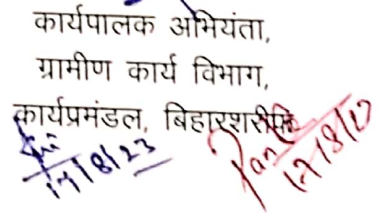 कार्यपालक अभियंता,
ग्रामीण कार्य विभाग,
कार्यप्रमंडल, बिहारशरीफ
17/8/23 17/8/23